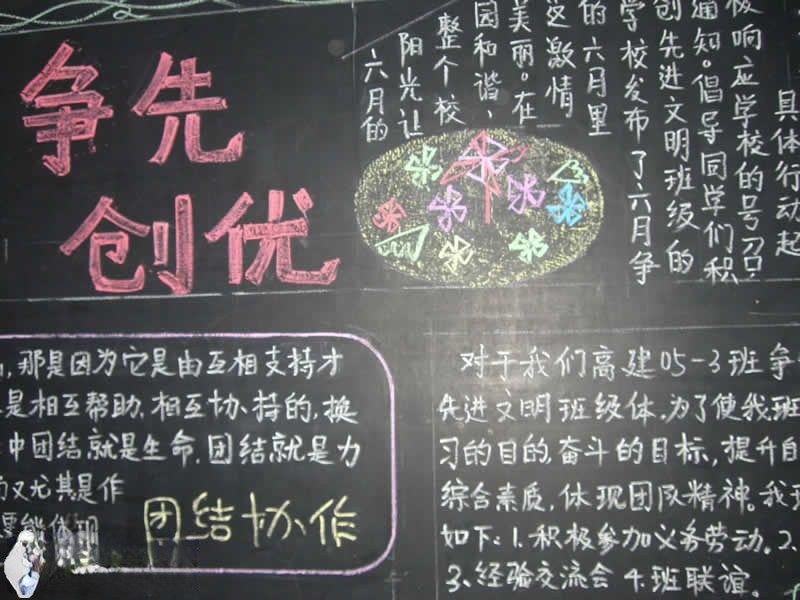 争先
创优
六月的
阳光让
整个校
园和谐、
美丽。在
这激情
的六月里
学校发布了六月争
创先进文明班级的
通知。倡导同学们积
极响应学校的号召
具体行动起
,那是因为它是由互相支持才
是相互帮助,相互协持的,换
中团结就是生命,团结就是力
又尤其是作
团结协作
对于我们高建05-3班争
先进文明班级体,为了使我班
习的目的,奋斗的目标,提升自
综合素质,体现团队精神。我
如下:1.积极参加义务劳动。2.
3.经验交流会4.班联谊。